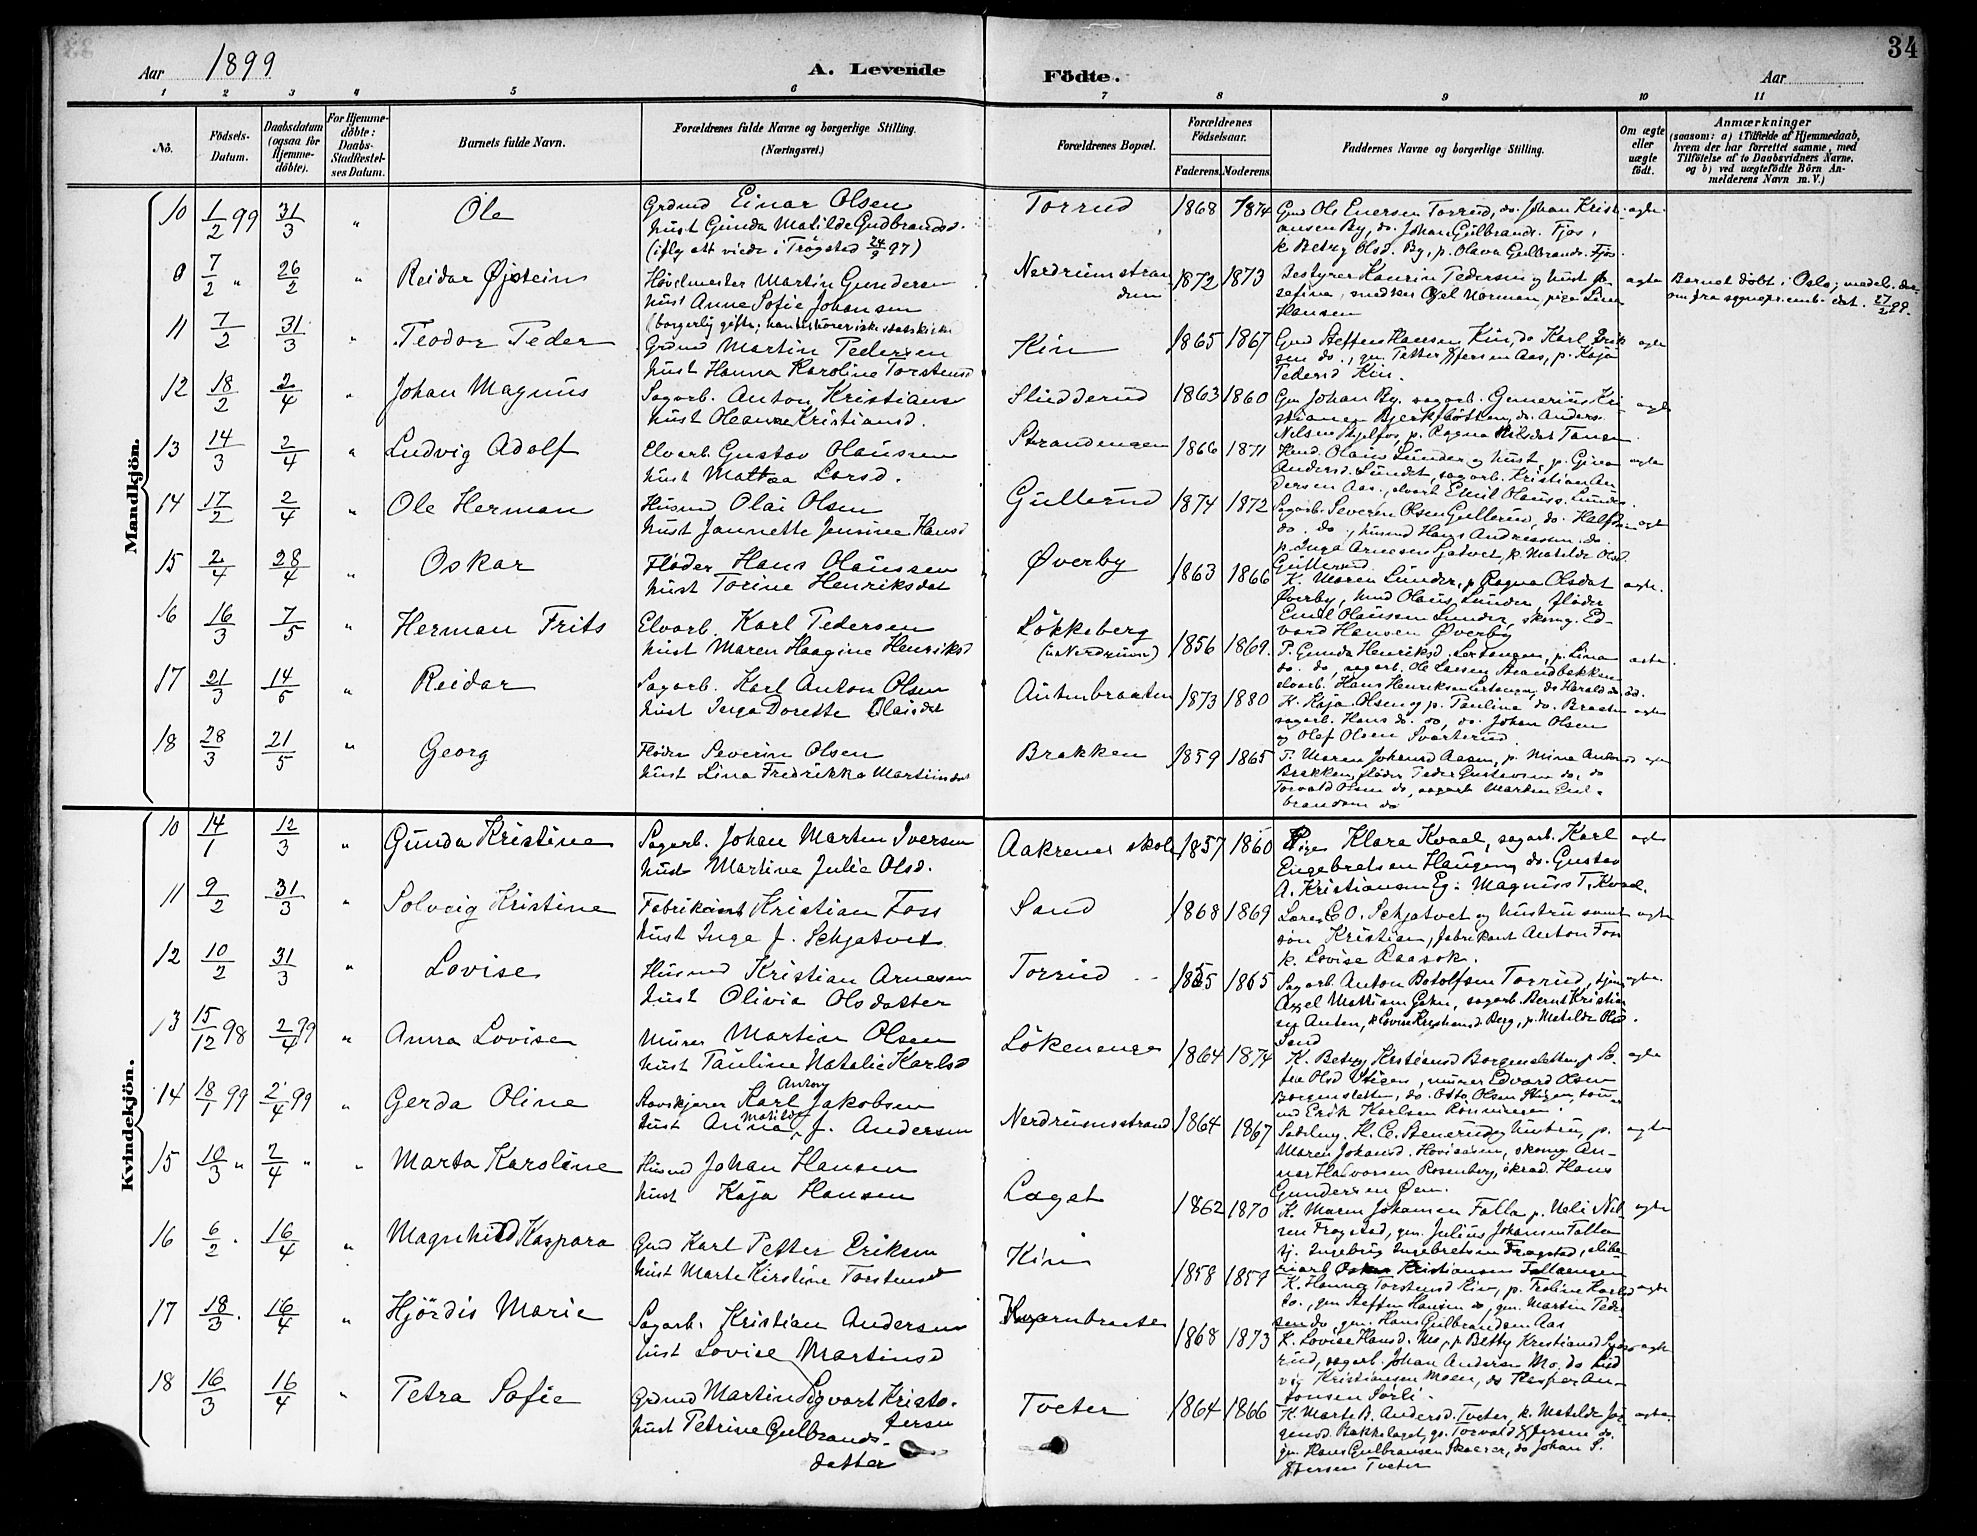 Aar 1899
A. Levende Födte.
Aar
34
1 2 3 4 5 6 7 8 9 10 11
Nö.
Födsels-Datum.
Daabsdatum (ogsaa for Hjemme-döbte).
For Hjemme-döbte: Daabs-Stadfæstel-ses Datum.
Barnets fulde Navn.
Forældrenes fulde Navne og borgerlige Stilling. (Næringsvei.)
Forældrenes Bopæl.
Forældrenes Födselsaar.
Faderens. Moderens.
Faddernes Navne og borgerlige Stilling.
Om ægte eller uægte födt.
Anmærkninger
(saasom: a) i Tilfælde af Hjemmedaab, hvem der har forrettet samme, med Tilföielse af to Daabsvidners Navne. og b) ved uægtefödte Börn An-melderens Navn m. V.)
Mandkjön.
10 1/2 99 31/3 " Ole
Grdmd Einar Olsen
hust Gunda Matilde Gudbrandsd.
(ifly att viede i Trøgstad 24/9 97)
Torrud 1868 1874
Gmd Ole Enersen Torrud, do. Johan Krist-
ansen By, do. Johan Gulbrands. Fjøs,
k Betzy Olsd. By, p. Olava Gulbrands. Fjøs.
ægte
9 7/2 " 26/2 " Reidar Øjstein
Hövelmester Martin Gundersen
hust Anne Sofie Johansen
(borgerlig gifte,
Nordrumstran
den 1872 1873
Bestyrer Pedersen og hust Jo-
sefine, snedker Axel Norman, pige
Hansen
ægte
Barnet döbt i Oslo; meddel.
27/2 99.
11 7/2 31/3 " Teodor Peder
Grdmd Martin Pedersen
hust Hanna Karoline Torstensd
Kin 1865 1867
Gmd Steffen Hansen Kin, do Karl Erik
sen do., gm. Petter Aas, p. Kaja
Pedersd Kin.
ægte
12 18/2 2/4 " Johan Magnus
Sagarb. Anton Kristians
hust Oleanna Kristiansd.
Sludderud 1863 1860
Gm Johan By, sagarb. Kri-
stiansen do. Anders
Nilsen p. Ragna Nilsdat Tangen
ægte
13 14/3 2/4 " Ludvig Adolf
Elvarb. Gustav Olaussen
hust Mattea Larsd.
Strandengen 1866 1871
Husmd. Olaus Lunder og hust, p.
Andersd. Lundet, sagarb. Kristian An
dersen Aas, elvarb Emil Olauss. Lunder.
ægte
14 17/2 2/4 " Ole Herman
Husmd Olai Olsen
hust Jannette Jensine Hansd
Gullerud 1874 1872
Sagarb. Severin Olsen Gullerud, do. Halfdan
do. do., husmd Hans Andreassen do.
p. Inga Arnesen k. Matilde Olsd.
Gullerud
ægte
15 2/4 28/4 " Oskar
Fløder Hans Olaussen
hust Torine Henriksdat
Øverby 1863 1866
K. Maren Lunder, p Ragna Olsdat
Øverby, hmd Olaus Lunder, fløder
Emil Olaussen Lunder, skomg. Ed-
vard Hansen Øverby
ægte.
16 16/3 7/5 " Herman Frits
Elvarb. Karl Pedersen
hust Maren Haagine Henriksd
Lökkeberg
(u. Nordrum) 1856 1869.
P. Gunda Henriksd. p. Lina
do. do, sagarb. Ole Larsen Strandbakken
elvarb. Hans Henriksen do Harald do do.
ægte.
17 21/3 14/5 " Reidar
Sagarb. Karl Anton Olsen
hust Inga Dorette Olaisdat
Antenbraaten 1873 1880
K. Kaja Olsen og p. Pauline do. Braaten
sagarb. Hans do. do, do. Johan Olsen
og Olof Olsen Svarterud
ægte
18 28/3 21/5 " Georg
Fløder Severin Olsen
hust Lina Fredrikke Martinsdat
Brekken 1859 1865
P. Maren Johansd Aasen, p. Mina Antonsd
Brekken, fløder Peder Gustavsen do, do
Torvald Olsen do, sagarb Martin Gul-
brandsen do
ægte
Kvindekjön.
10 14/1 12/3 " Gunda Kristine
Sagarb. Johan Martin Iversen
hust Martine Julie Olsd.
Aakrenes skole 1857 1860
Pige Klara Kvael, sagarb. Karl
Engebretsen Haugen, do. Gustav
A. Kristiansen Eg: Magnus T. Kvael.
ægte
11 9/2 31/3 " Solveig Kristine
Fabrikant Kristian Foss
hust Inga J. Schjatvet
Sand 1868 1869
Lars C. O. Schjatvet og hustru samt
søn Kristian, fabrikant Anton Foss
k. Lovise Raasok.
ægte
12 10/2 31/3 " Lovise
Husmd Kristian Arnesen
hust Olivia Olsdatter
Torrud 1855 1865
Sagarb. Anton Botolfsen Torrud, tjen
Axel Mattisen sagarb. Bernt Kristian
sen Anton, k Lovise Kristiansd. Berg, p. Matilde Olsd.
Sand
ægte.
13 15/12 98 2/4 99 " Anna Lovise
Murer Martin Olsen
hust Pauline Natalie Karlsd
Lökenengen 1864 1874
K. Betzy Kristiansd Borgensletten, p So-
fie Olsd Stigen, murer Edvard Olsen
Borgensletten, do. Otto Olsen Stigen, tøm-
md Erik Karlsen Rönningen.
ægte
14 18/1 99 2/4 99 " Gerda Oline
Stavskjærer Karl Anton Jakobsen
hust Anna Matilde J. Andersen
Nordrumsstrand 1864 1867
Sadelmg. H. C. Stenerud og hustru, p.
Maren Johansd. Hoviaasen, skomg. An-
ners Halvorsen Rosenberg, skræd. Hans
Gundersen Øien.
ægte
15 10/3 " 2/4 " " Marta Karoline
Husmd Johan Hansen
hust Kaja Hansen
Laget 1862 1870
K. Maren Johansen Falla p. Neli Nil-
sen Frogstad, gm. Julius Johansen Falla
tj. Ingebrig Ingebretsen Frogstad, slibe-
riarb Oskar Kristiansen Fallaengen
ægte
16 6/2 . 16/4 " Magnhild Kaspara
Gmd Karl Petter Eriksen
hust Marte Kirstine Torstensd
Kin 1858 1859
K. Hanna Torstensd Kin, p. Troline Karlsd
do., gm Steffen Hansen do, gm. Martin Peder
sen do gm. Hans Gulbrandsen Aas
ægte
17 18/3 . 16/4 " Hjördis Marie
Sagarb. Kristian Andersen
hust Lovise Martinsd
Kvernbraaten 1868 1873
K. Lovise Hansd. Mo, p Betty Kristiansd
rud, sagarb. Johan Andersen Mo, do Lud
vig Kristiansen Moen, do Kasper An-
tonsen Sørli.
ægte
18 16/3 16/4 " Petra Sofie
Grdmd Martin Sigvart Kristo-
fersen
hust Petrine Gulbrands-
datter
Tveter 1864 1866
K. Marte B. Andersd. Tveter, k. Matilde Jør
gensd. Bakkelaget, gs. Torvald do.
gm. Hans Gulbransen Skaerer, do Johan S.
Tveter
ægte.